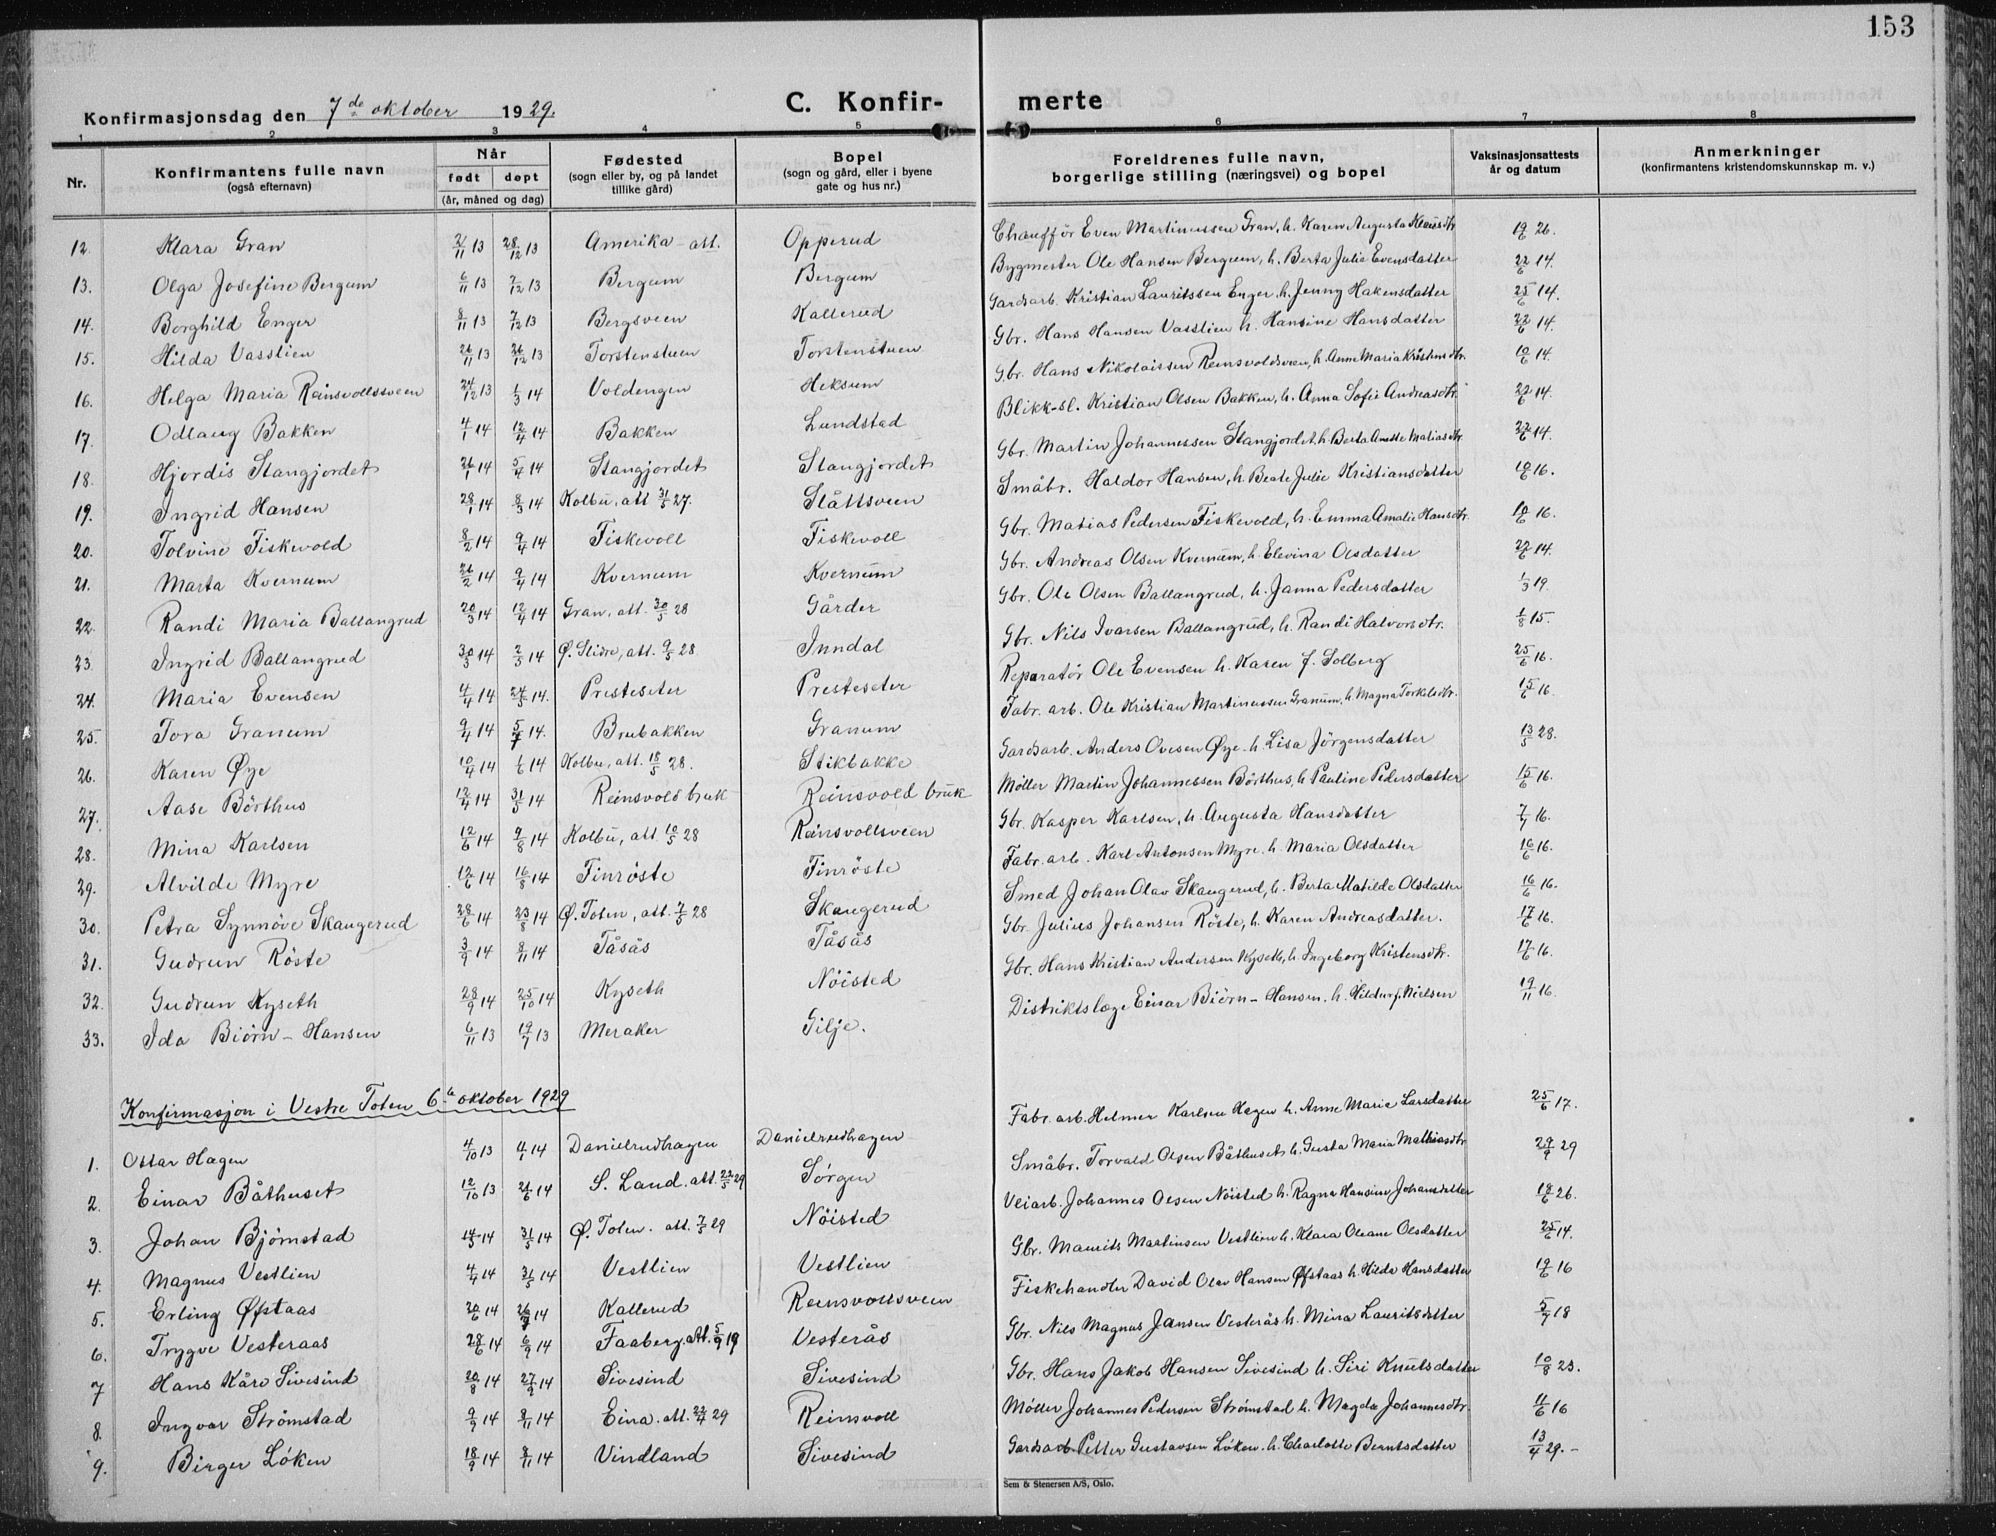 153
Konfirmasjonsdag den 7de oktober 1929. C. Konfir- merte
1 2 3 4 5 6 7 8
Nr. Konfirmantens fulle navn (også efternavn) Når født døpt (år, måned og dag) Fødested (sogn eller by, og på landet tillike gård) Bopel (sogn og gård, eller i byene gate og hus nr.) Foreldrenes fulle navn, borgerlige stilling (næringsvei) og bopel Vaksinasjonsattests år og datum Anmerkninger (konfirmantens kristendomskunnskap m. v.)
12. Klara Gran 2/11 13 28/12 13 Amerika - att. Opperud Chauffør Even Martinussen Gran, h. Karen Augusta Klausdtr 19/6 26.
13. Olga Josefine Bergum 6/11 13 7/12 13 Bergum Bergum Bygmester Ole Hansen Bergum, h. Berta Julie Evensdatter 22/6 14.
14. Borghild Enger 8/11 13 7/12 13 Bergsveen Kallerud Gardsarb. Kristian Lauritssen Enger, h. Jenny Hakensdatter 25/6 14.
15. Hilda Vasslien 26/11 13 26/12 13 Torstenstuen Torstenstuen Gbr. Hans Hansen Vasslien h. Hansine Hansdatter 22/6 14.
16. Helga Maria Reinsvollsveen 24/12 13 1/3 14 Voldengen Heksum Gbr. Hans Nikolaissen Reinsvoldsveen, h. Anne Maria Kristensdtr. 10/6 14.
17. Odlaug Bakken 4/1 14 12/4 14 Bakken Lundstad Blikk-sl. Kristian Olsen Bakken, h. Anna Sofie Andreasdtr. 22/6 14.
18. Hjordis Stangjordet 26/1 14 5/4 14 Stangjordet Stangjordet Gbr. Martin Johannessen Stangjordet, h. Berta Anette Matiasdtr. 22/6 14.
19. Ingrid Hansen 28/1 14 8/3 14 Kolbu, att 31/5 27. Slåttsveen Småbr. Haldor Hansen, h. Beate Julie Kristiansdatter 10/6 16.
20. Tolvine Fiskevold 8/2 14 9/4 14 Fiskevoll Fiskevoll Gbr. Matias Pedersen Fiskevold, h. Emma Amalie Hansdtr. 10/6 16.
21. Marta Kvernum 26/2 14 9/4 14 Kvernum Kvernum Gbr. Andreas Olsen Kvernum, h. Elevina Olsdatter 22/6 14.
22. Randi Maria Ballangrud 20/3 14 12/4 14 Gran, att. 30/5 28 Gårder Gbr. Ole Olsen Ballangrud, h. Janna Pedersdatter 1/3 19.
23. Ingrid Ballangrud 30/3 14 2/5 14 Ø. Slidre, att. 9/5 28. Inndal Gbr. Nils Ivarsen Ballangrud, h. Randi Halvorsdtr. 1/8 15.
24. Maria Evensen 4/4 14 24/5 14. Presteseter Presteseter Reparatør Ole Evensen h. Karen f. Solberg 25/6 16.
25. Tora Granum 9/4 14 5/7 14. Brubakken Granum Fabr. arb. Ole Kristian Martinussen Granum, h. Magna Torkelsdtr. 15/6 16.
26. Karen Øye 10/4 14 1/6 14 Kolbu, att. 18/5 28. Stikbakke Gardsarb. Anders Ovesen Øye. h. Lisa Jörgensdatter 13/5 28.
27. Aase Börthus 12/4 14 31/5 14 Reinsvold bruk Reinsvold bruk Møller Martin Johannessen Börthus, h. Pauline Pedersdatter 15/6 16.
28. Mina Karlsen 12/6 14 9/8 14 Kolbu, att 10/5 28 Reinsvollsveen Gbr. Kasper Karlsen, h. Augusta Hansdatter 7/7 16.
29. Alvilde Myre 12/6 14 16/8 14 Finröste Finröste Fabr. arb. Karl Antonsen Myre. h. Maria Olsdatter 16/6 16.
30. Petra Synnöve Skaugerud 28/6 14 23/8 14 Ø. Toten, att. 7/5 28 Skaugerud Smed Johan Olav Skaugerud, h. Berta Matilde Olsdatter 16/6 16.
31. Gudrun Röste 3/9 14 8/11 14 Tåsås Tåsås Gbr. Julius Johansen Röste, h. Karen Andreasdatter. 17/6 16.
32. Gudrun Kyseth 28/9 14 25/10 14 Kyseth Nöisted Gbr. Hans Kristian Andersen Kyseth, h. Ingeborg Kristensdtr. 17/6 16.
33. Ida Biörn-Hansen 6/11 13 19/7 13 Meraker Gilje. Distriktslæge Einar Biörn-Hansen. h. Hildur f. Nielsen 19/11 16.
Konfirmasjon i Vestre Toten 6te oktober 1929
1. Ottar Hagen 4/10 13 4/1 14 Danielrudhagen Danielrudhagen Fabr. arb. Helmer Karlsen Hagen h. Anne Marie Larsdatter 25/6 17.
2. Einar Båthuset 12/10 13 21/6 14 S. Land. att. 22/5 29 Sørgen Småbr. Torvald Olsen Båthuset h. Gusta Maria Mathiasdtr 29/9 29
3. Johan Bjørnstad 14/3 14 31/5 14 Ø. Toten. att. 7/5 29 Nöisted Veiarb. Johannes Olsen Nöisted h. Ragna Hansine Johansdatter 18/6 26.
4. Magnus Vestlien 4/4 14 31/5 14 Vestlien Vestlien Gbr. Maurits Martinsen Vestlien h. Klara Oleane Olsdatter 25/6 14.
5. Erling Øfstaas 20/6 14 26/7 14 Kallerud Reinsvollsveen Fiskehandler David Olav Hansen Øfstaas h. Hilda Hansdatter 19/6 16
6. Trygve Vesteraas 28/6 14 6/9 14 Faaberg. Att. 5/9 19 Vesterås Gbr. Nils Magnus Jansen Vesterås h. Mina Lauritsdatter 5/7 18
7 Hans Kåre Sivesind 20/8 14 27/9 14 Sivesind Sivesind Gbr. Hans Jakob Hansen Sivesind h. Siri Knutsdatter 10/8 23.
8. Ingvar Strømstad 9/9 14 8/11 14 Eina. att. 22/4 29 Reinsvoll Møller Johannes Pedersen Strømstad h. Magda Johannesdtr. 11/6 16
9. Birger Løken 18/9 14 8/11 14 Vindland Sivesind Gardsarb Petter Gustavsen Løken. h. Charlotte Berntsdatter 13/4 29.-
Sem & Stenersen A/S, Oslo.